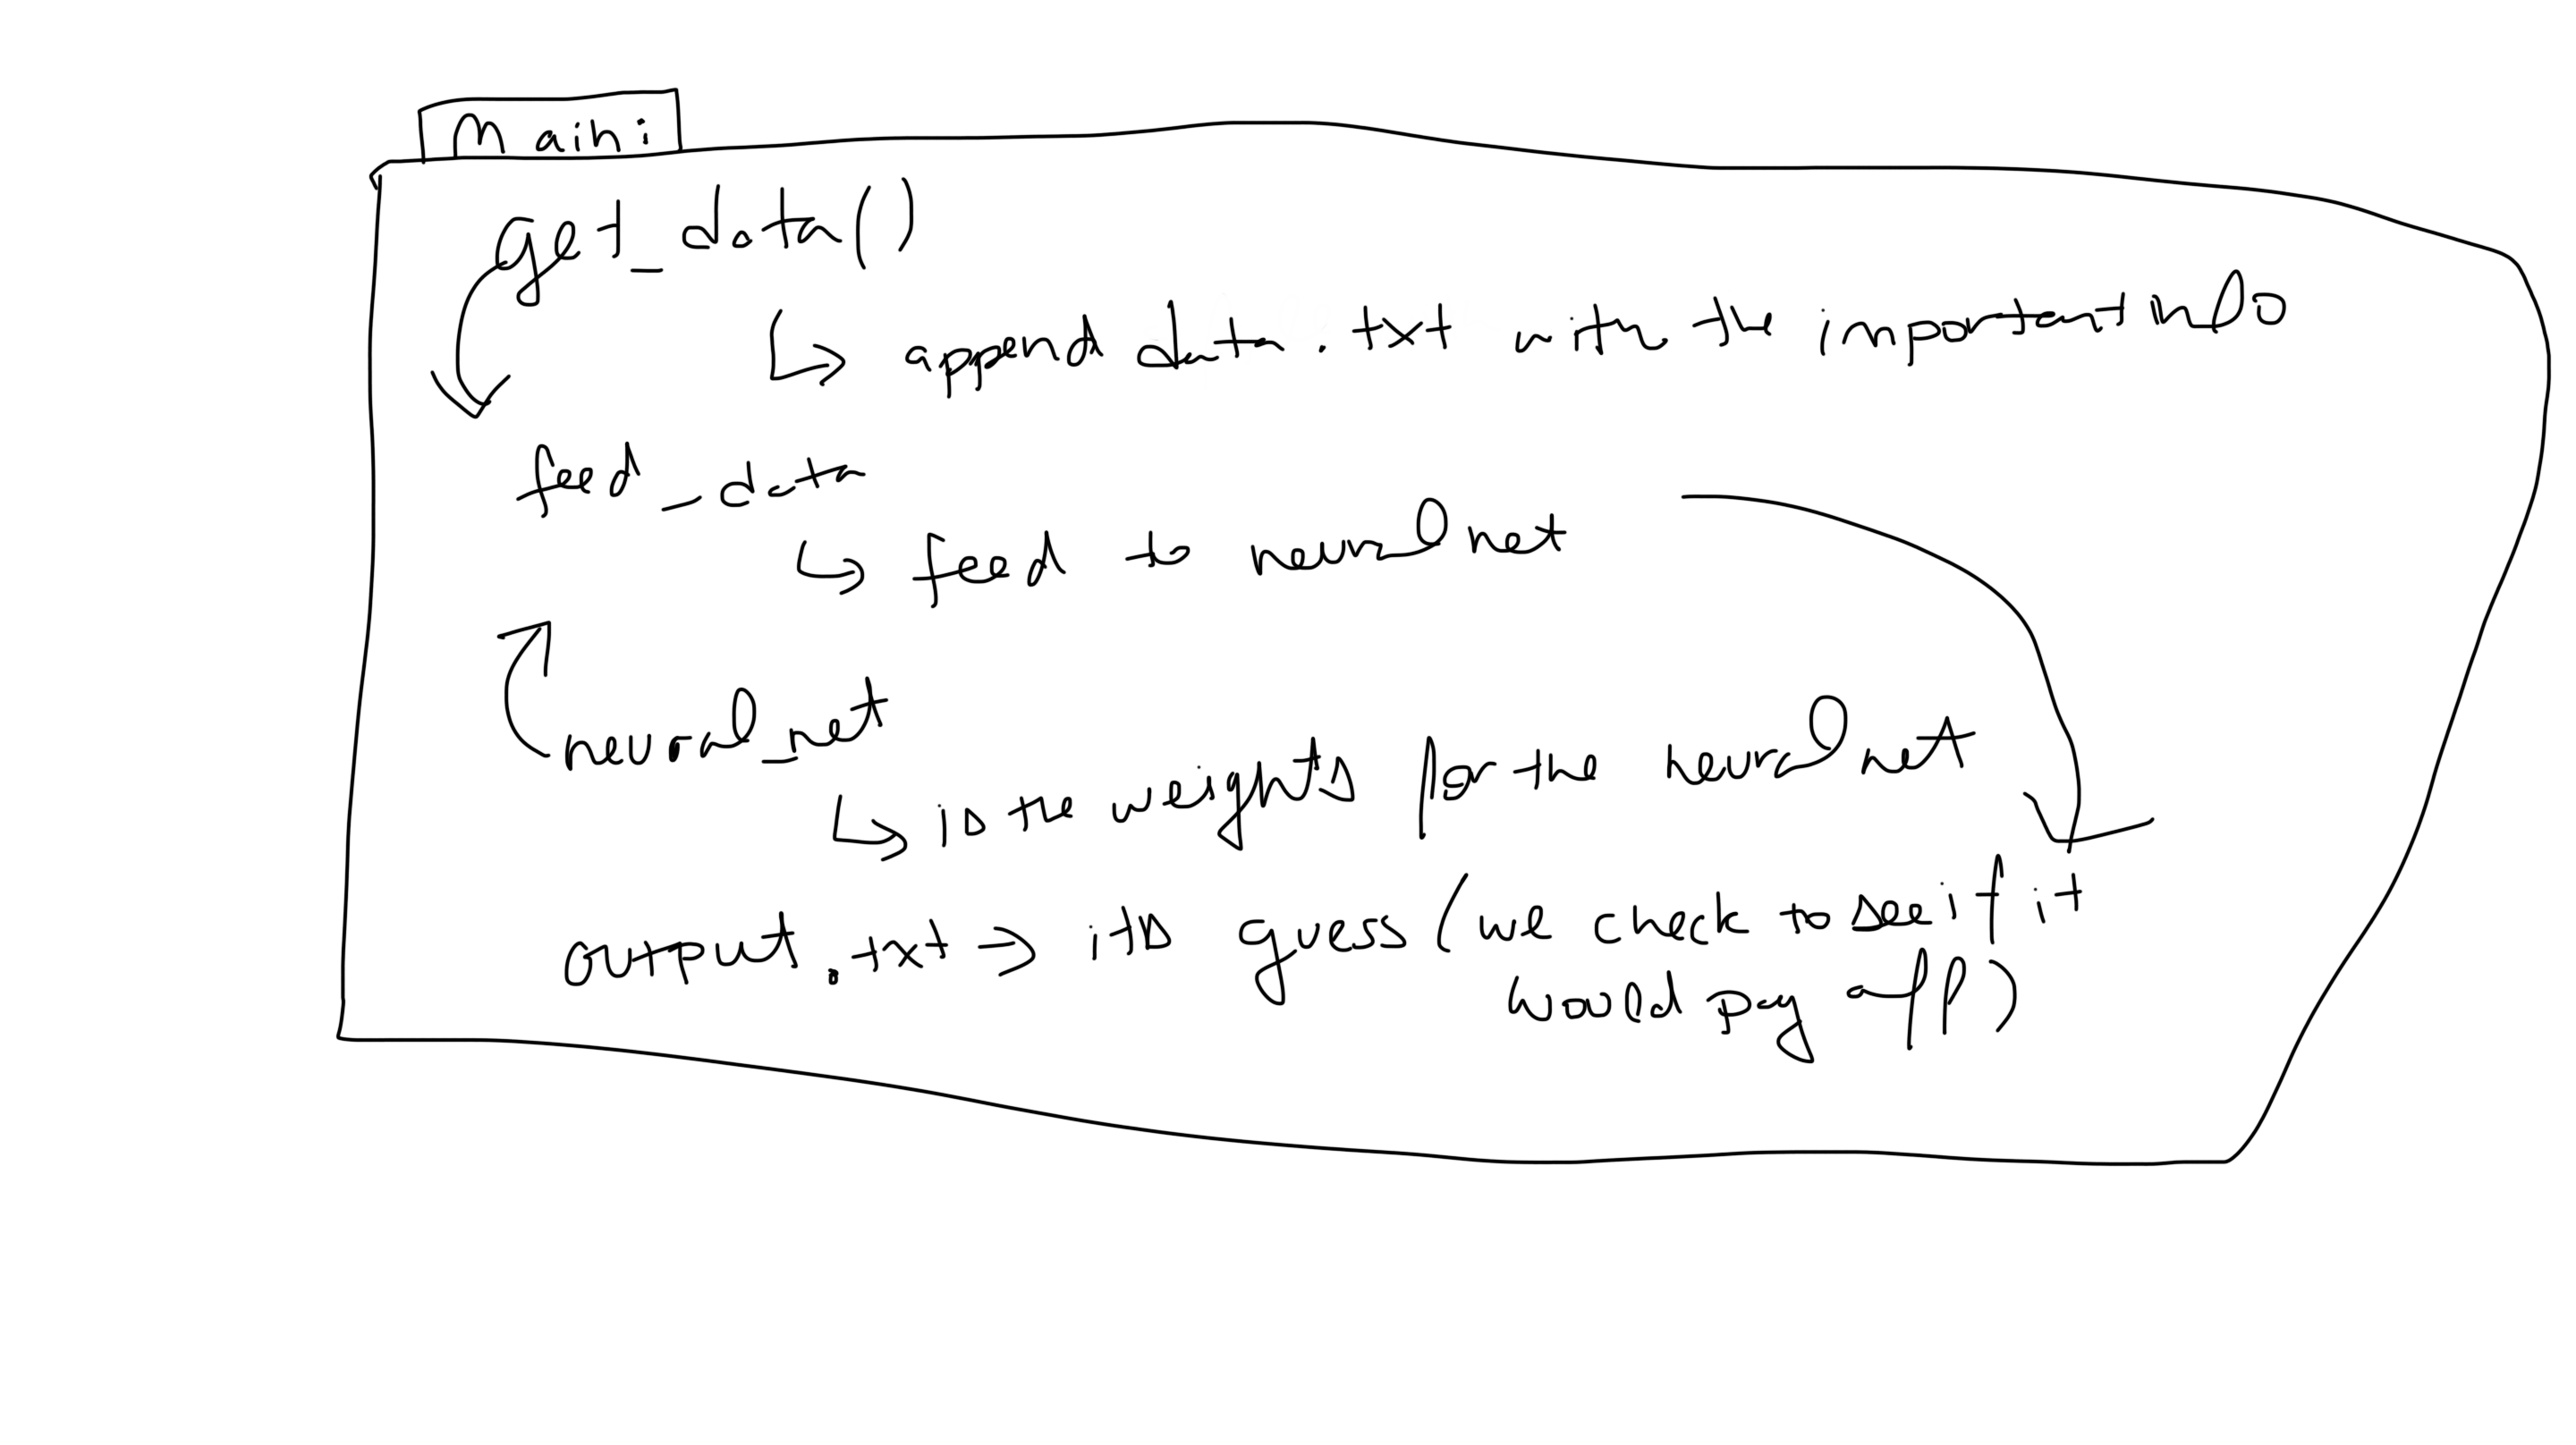 Main:
get_data()
↳ append data.txt with the important info
feed_data
↳ feed to neural net
neural_net
↳ is the weights for the neural net
output.txt → its guess (we check to see if it
would pay off)